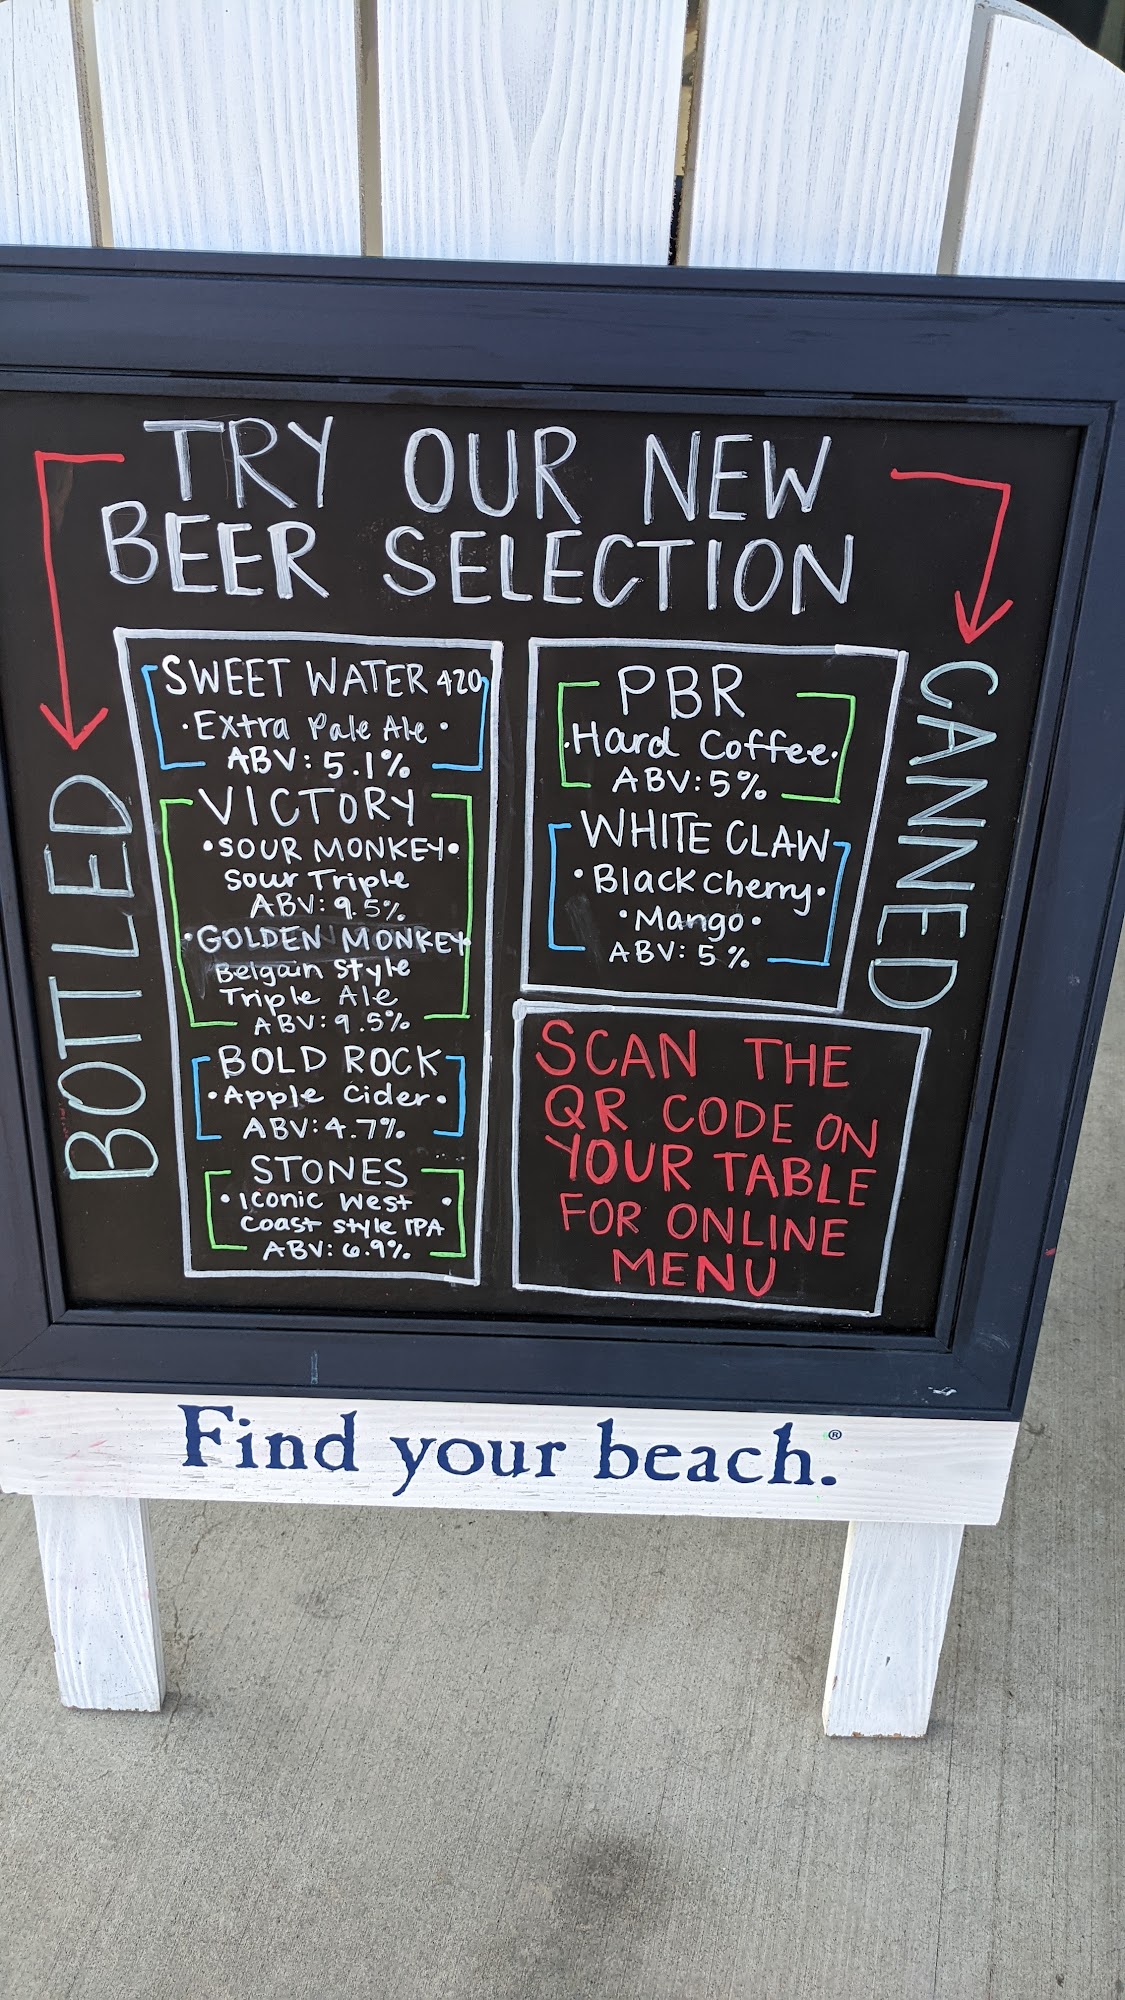 TRY OUR NEW
BEER SELECTION
BOTTLED
SWEET WATER 420
·Extra Pale Ale·
ABV: 5.1%
VICTORY
•SOUR MONKEY•
Sour Triple
ABV: 9.5%
•GOLDEN MONKEY
Belgain Style
Triple Ale
ABV: 9.5%
BOLD ROCK
•Apple Cider•
ABV: 4.7%
STONES
•Iconic West •
Coast style IPA
ABV: 6.9%
CANNED
PBR
·Hard Coffee·
ABV: 5%
WHITE CLAW
•Black Cherry•
•Mango•
ABV: 5%
SCAN THE
QR CODE ON
YOUR TABLE
FOR ONLINE
MENU
Find your beach.®